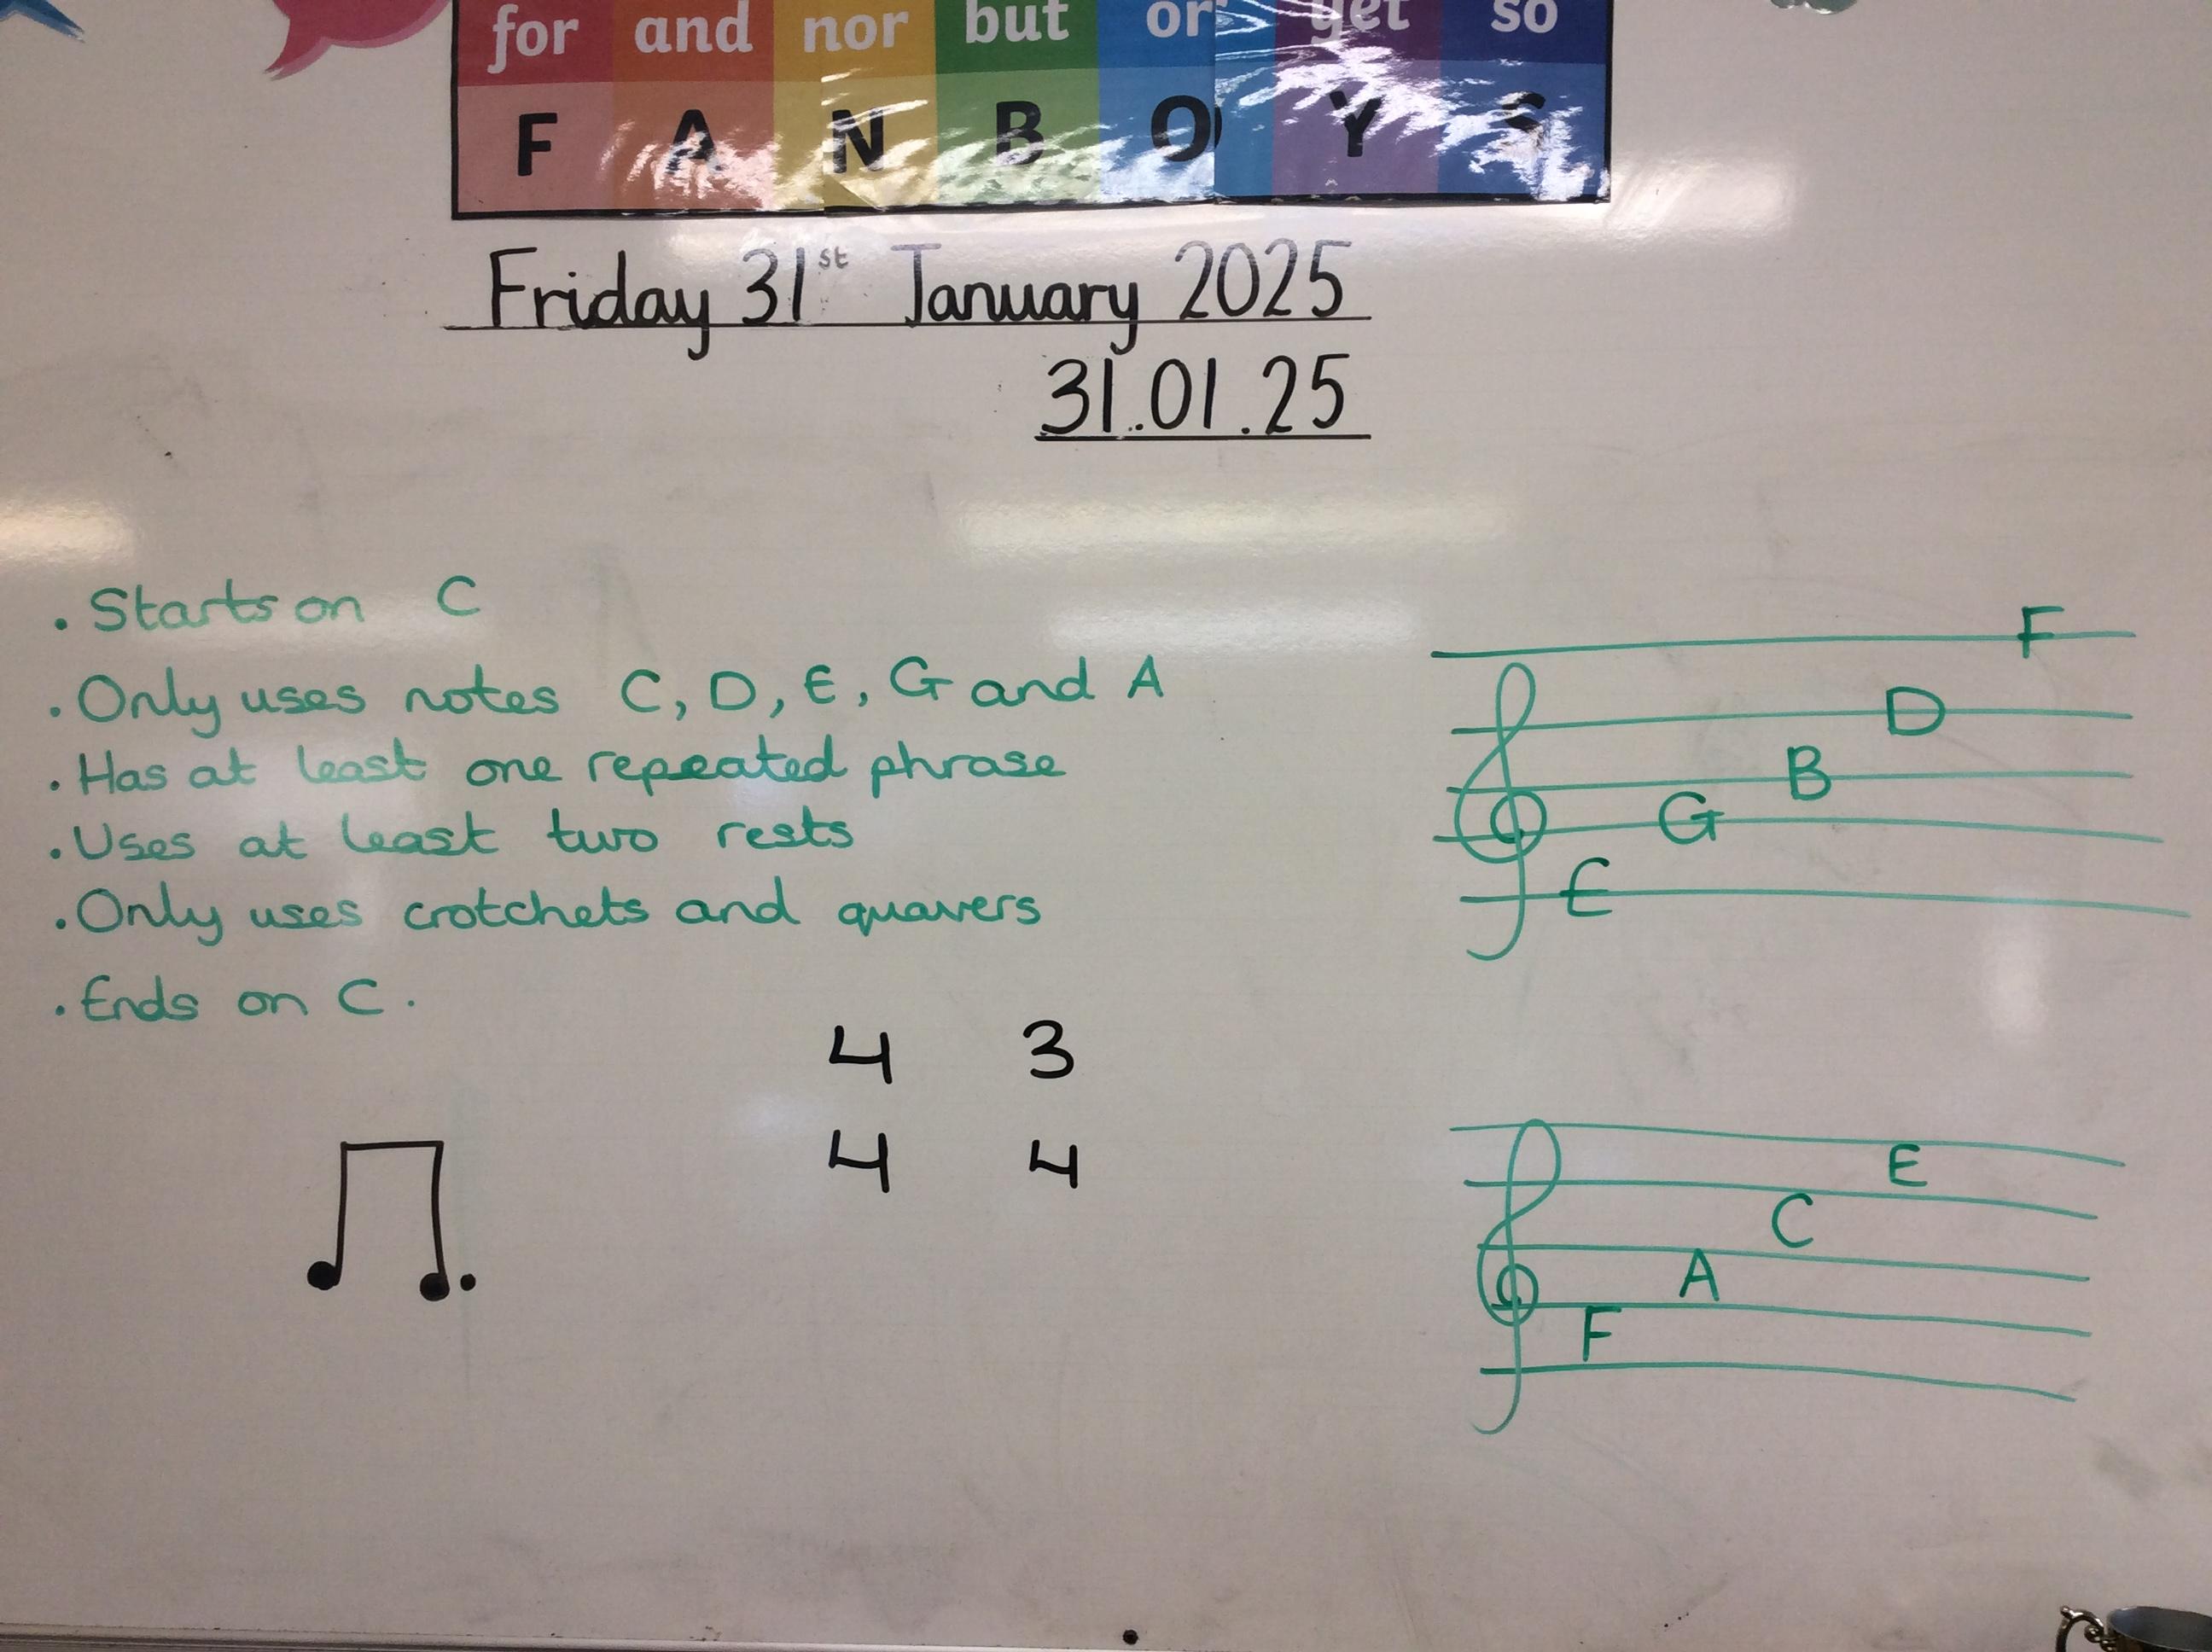 for and nor but or yet so
F A N B O Y S
Friday 31st January 2025
31.01.25
. Starts on C
. Only uses notes C, D, E, G and A
. Has at least one repeated phrase
. Uses at least two rests
. Only uses crotchets and quavers
. Ends on C.
4 3
4 4
F
D
B
G
E
E
C
A
F